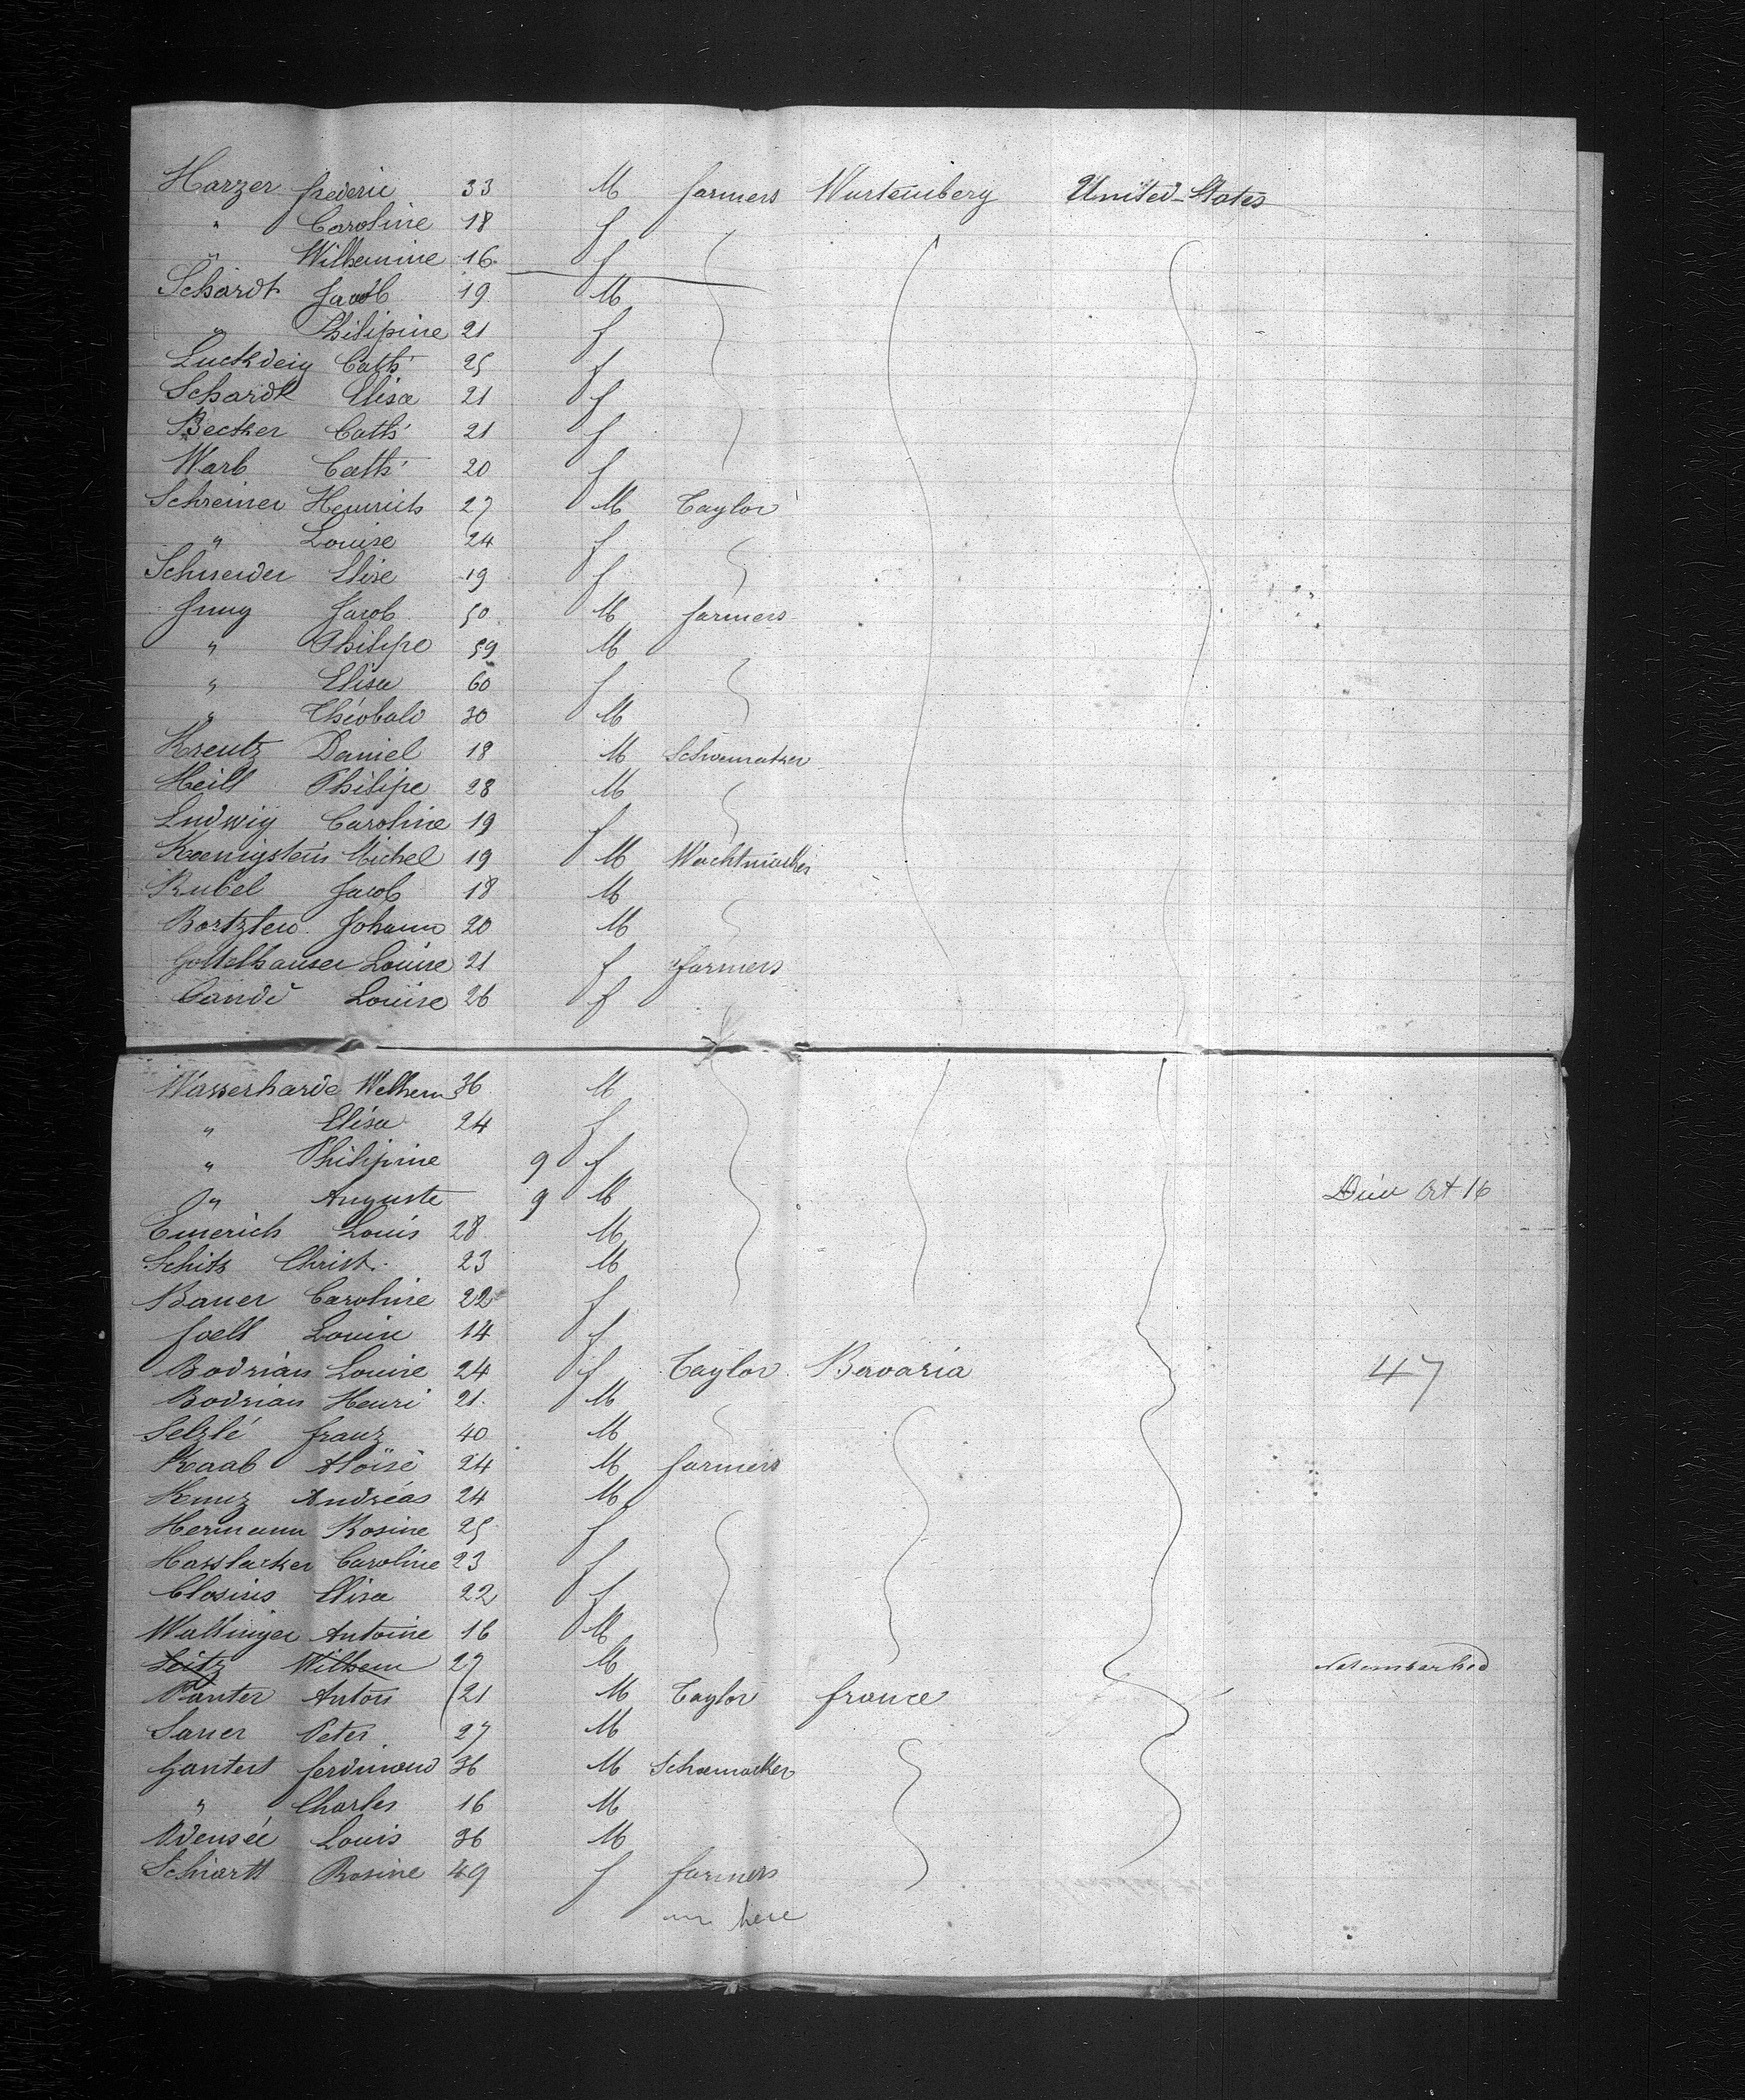 Harzer frederic 33 M farmers Wurtemberg United-States
" Caroline 18 f
" Wilhemine 16 f
Schardt Jacob 19 M
" Philipine 21 f
Luckdeig Cath' 25 f
Schardt Elisa 21 f
Becker Cath' 21 f
Warb Cath' 20 f
Schreiner Heinrich 27 M Taylor
" Louise 24 f
Schneider Elise 19 f
Jung Jacob 50 M farmers
" Philipe 59 M
" Elisa 60 f
" Théobald 30 M
Kreutz Daniel 18 M Schoemaker
Heill Philipe 28 M
Ludwig Caroline 19 f
Koenigstein Michel 19 M Wachtmacker
Rubel Jacob 18 M
Johann 20 M
Gottelhauser Louise 21 f farmers
Candé Louise 26 f
Wasserharde Welhem 36 M
" Elisa 24 f
" Philipine 9 f
" Auguste 9 M Died Oct 16
Emerich Louis 28 M
Schitz Christ. 23 M
Bauer Caroline 22 f
Joell Louise 14 f
Bodrian Louise 24 f Taylor Bavaria 47
Bodrian Henri 21 M
Selzlé franz 40 M
Raab Aloïse 24 M farmers
Kunz Andréas 24 M
Hermann Rosine 25 f
Hasslacker Caroline 23 f
Closius Elisa 22 f
Wallinger Antoine 16 M
Seitz Wilhem 27 M Not embarked
Panter Anton 21 M Taylor france
Sauer Peter 27 M
Gantert ferdinand 36 M Schoemacker
" Charles 16 M
Odensée Louis 36 M
Schwartt Rosine 49 f farmers
here